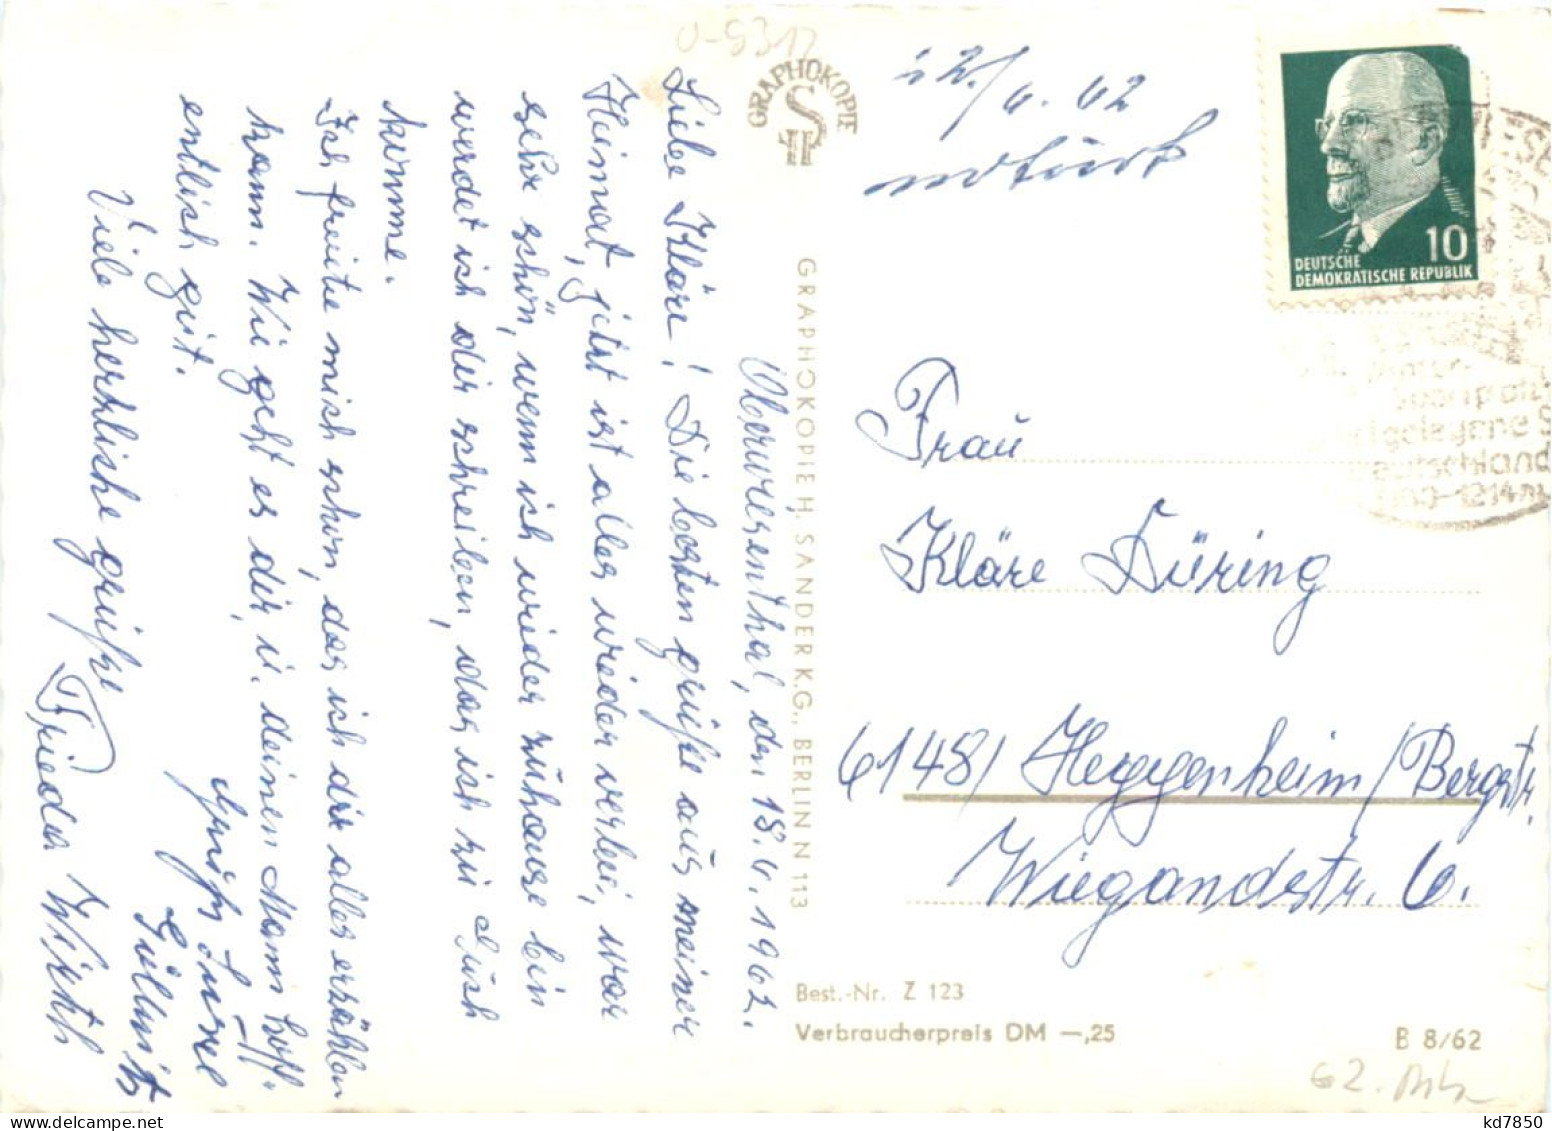 Oberwiesenthal, den 18.6.1962.
Liebe Kläre! Die besten grüße aus meiner
Heimat, jetzt ist alles wieder vorbei, war
sehr schön, wenn ich wieder zuhause bin
werdet ich dir schreiben, das ich zu Euch
komme.
Ich freute mich schon, das ich dir alles erzählen
kann. Wie geht es dir, u. deinen Mann hoff-
entlich gut.
Viele herzliche grüße
Frieda Wirth
GRAPHOKOPIE
GRAPHOKOPIE H. SANDER K.G., BERLIN N 113
6. 62
zurück
10
DEUTSCHE
DEMOKRATISCHE REPUBLIK
Frau
Kläre Düring
6148/ Heggenheim/Bergstr.
Wiegandstr. 6.
Best.-Nr. Z 123
Verbraucherpreis DM —,25
B 8/62
kd7850